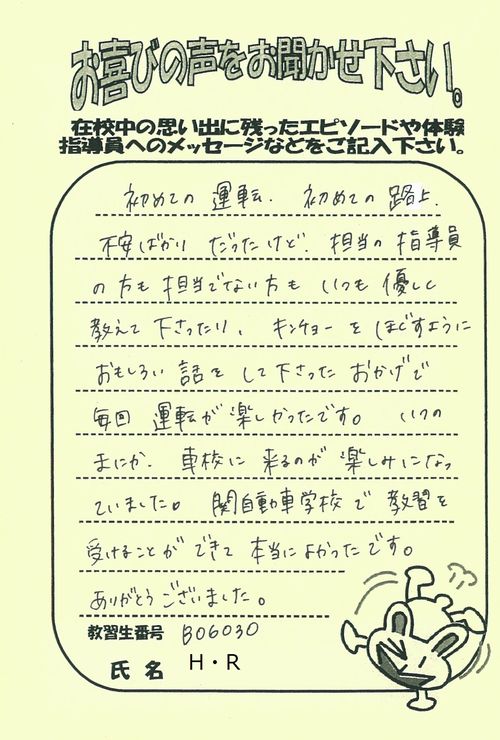 お喜びの声をお聞かせ下さい。
在校中の思い出に残ったエピソードや体験
指導員へのメッセージなどをご記入下さい。
初めての 運転、 初めての 路上、
不安ばかり だったけど、 担当の 指導員
の方も 担当でない方も いつも 優しく
教えて 下さったり、 キンチョーを ほぐすように
おもしろい 話を して下さった おかげで
毎回 運転が 楽しかったです。 いつの
まにか、 車校に 来るのが 楽しみになっ
ていました。 関自動車学校で 教習を
受けることが できて 本当によかったです。
ありがとうございました。
教習生番号 B06030
氏 名 H・R